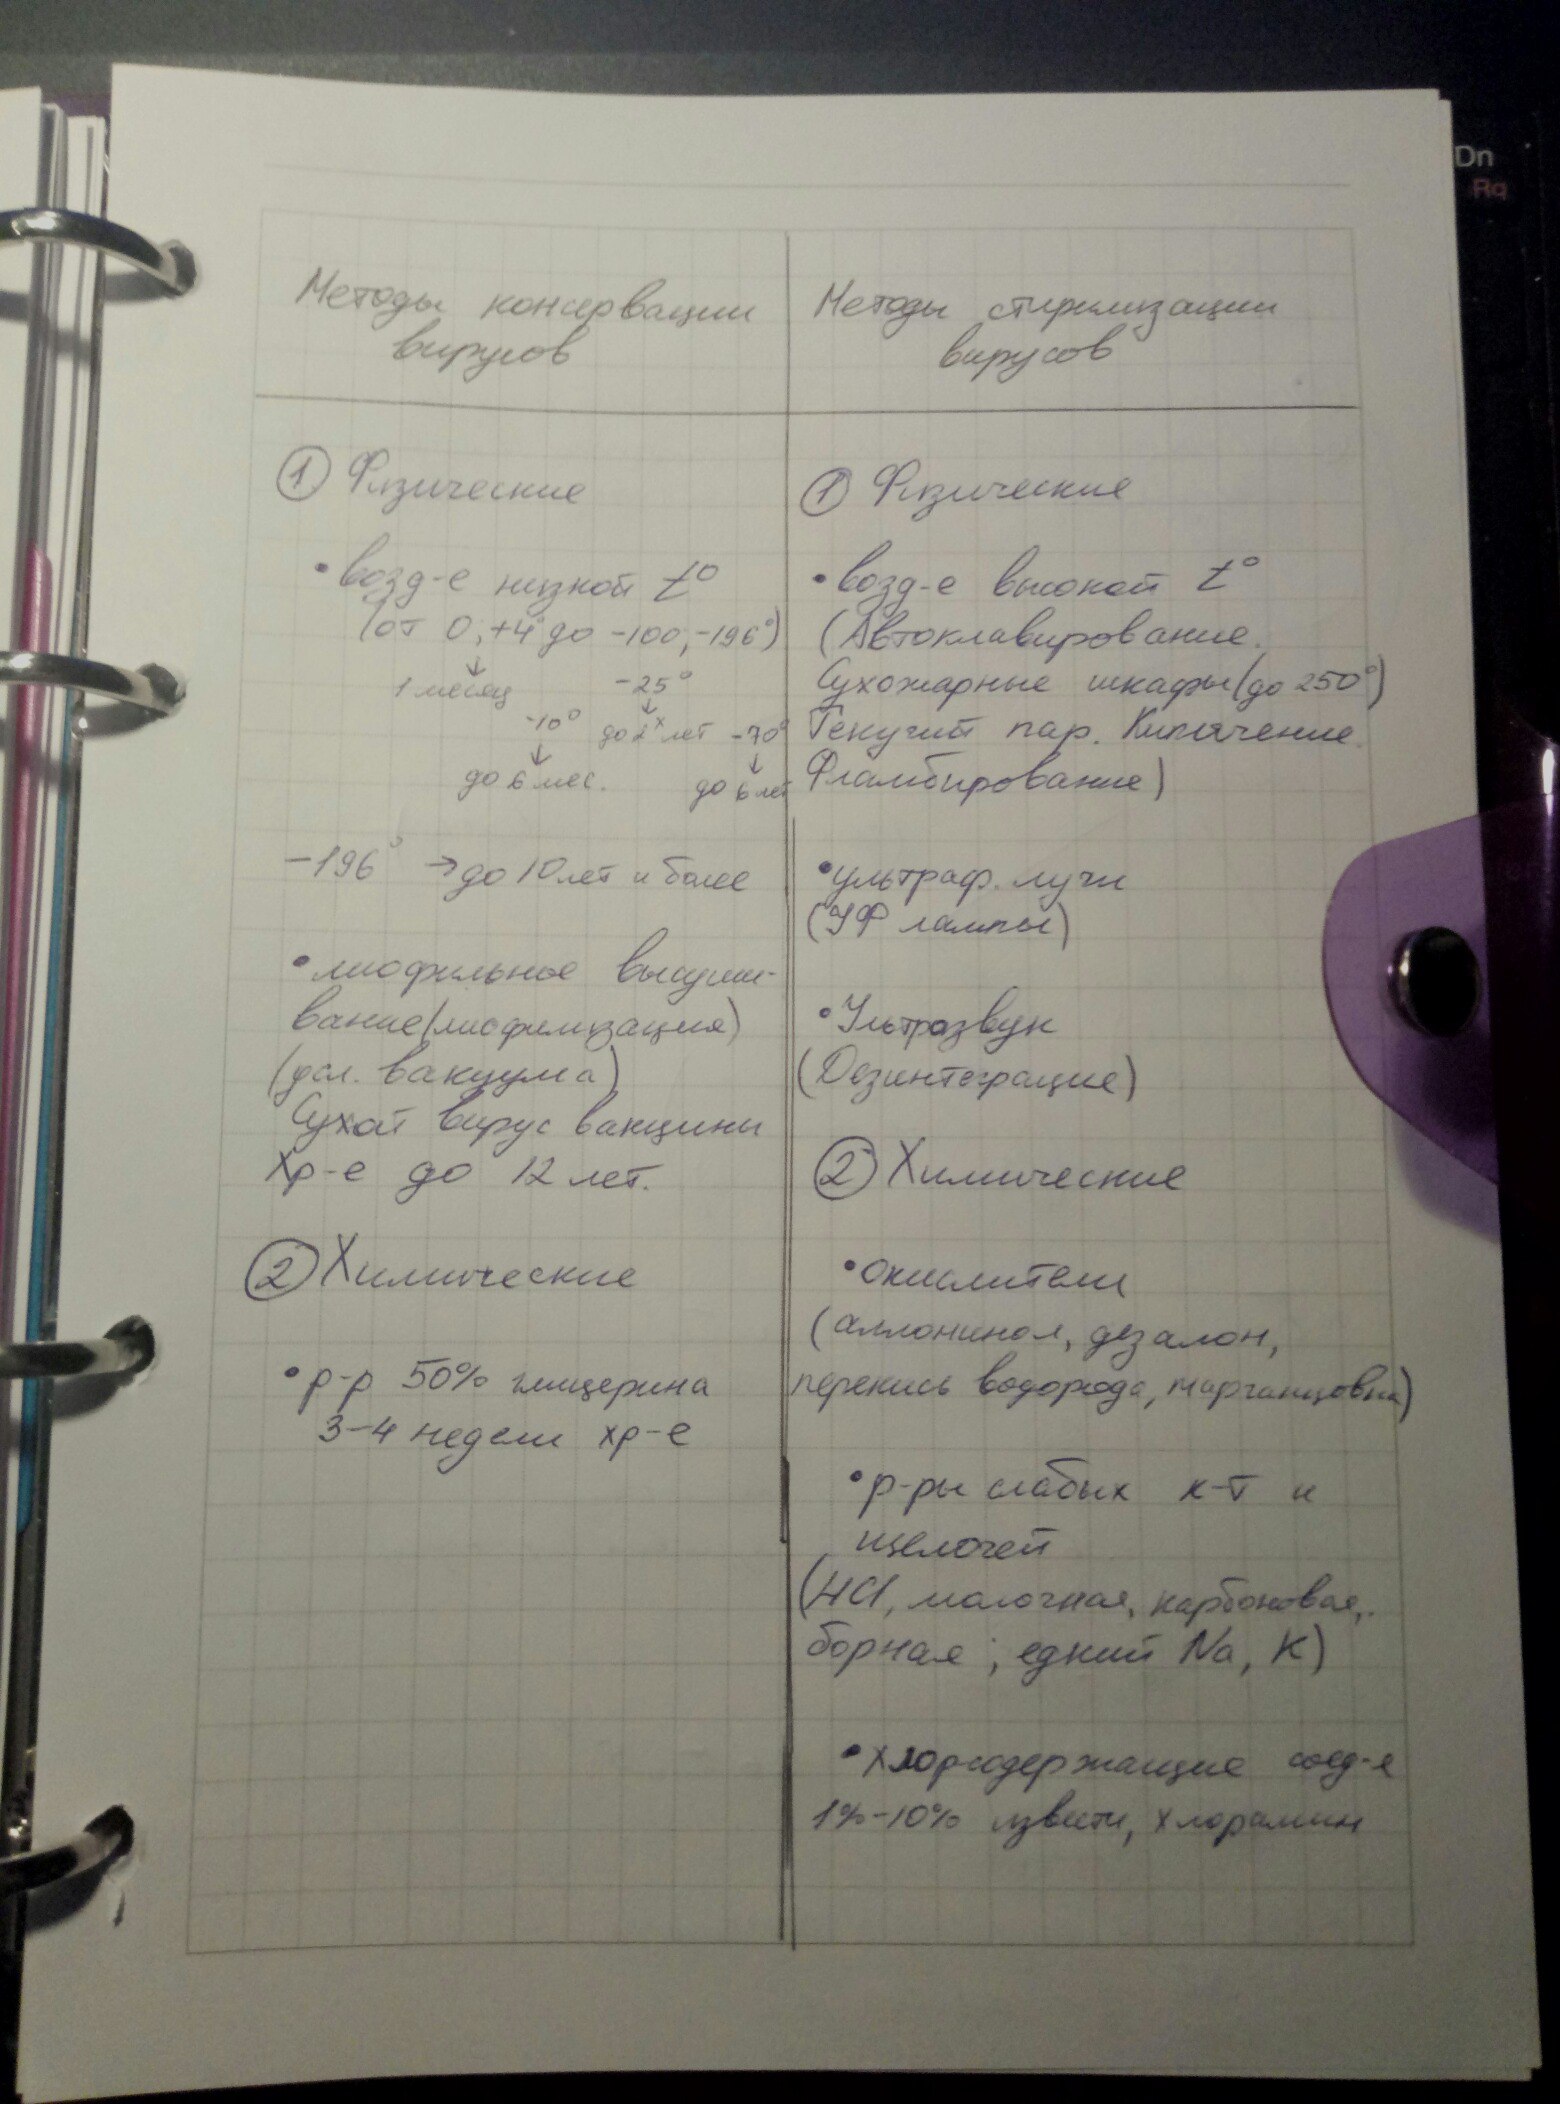 Методы консервации
вирусов
① Физические
• возд-е низкой t°
(от 0, +4° до -100, -196°)
↓
1 месяц
-25°
↓
-10°
до 2х лет
-70°
↓
↓
до 6 мес.
до 6 лет
-196° → до 10 лет и более
• лиофильное высуши-
вание (лиофилизация)
(усл. вакуума)
Сухой вирус вакцины
хр-е до 12 лет.
② Химические
• р-р 50% глицерина
3-4 недели хр-е
Методы стирилизации
вирусов
① Физические
• возд-е высокой t°
(Автоклавирование.
Сухожарные шкафы (до 250°)
Текучий пар. Кипячение.
Фламбирование)
• ультраф. лучи
(УФ лампы)
• Ультрозвук
(Дезинтеграция)
② Химические
• окислители
(дезалон,
перекись водорода, марганцовка)
• р-ры слабых к-т и
щелочей
(HCl, молочная, карбоновая,
борная; едкий Na, K)
• хлорсодержащие соед-я
1%-10% извести, хлорамин
Dn
Rq